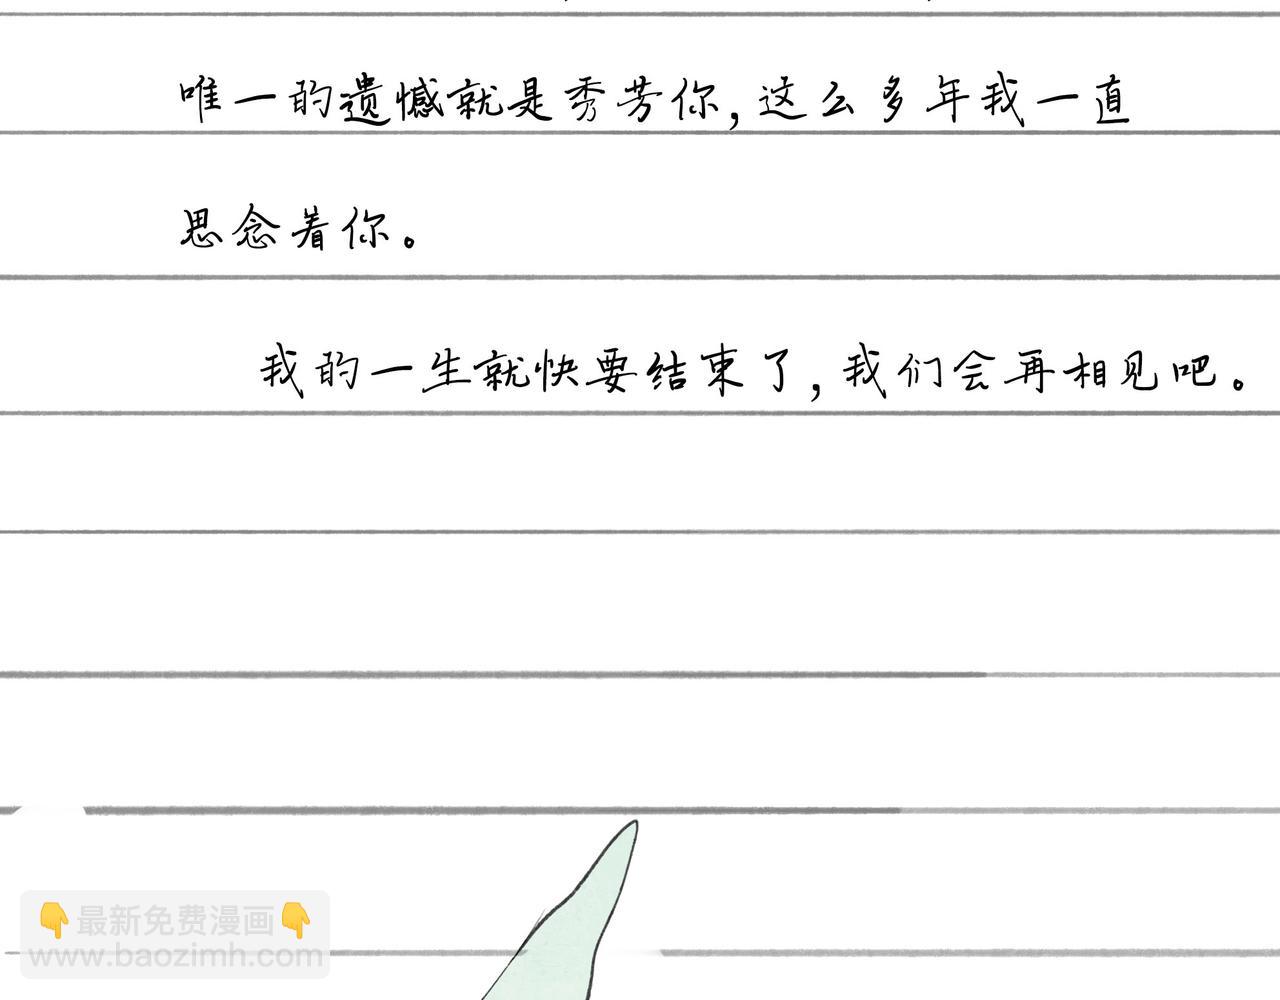 唯一的遗憾就是秀芳你,这么多年我一直
思念着你。
我的一生就快要结束了,我们会再相见吧。
👇最新免费漫画👇
www.baozimh.com